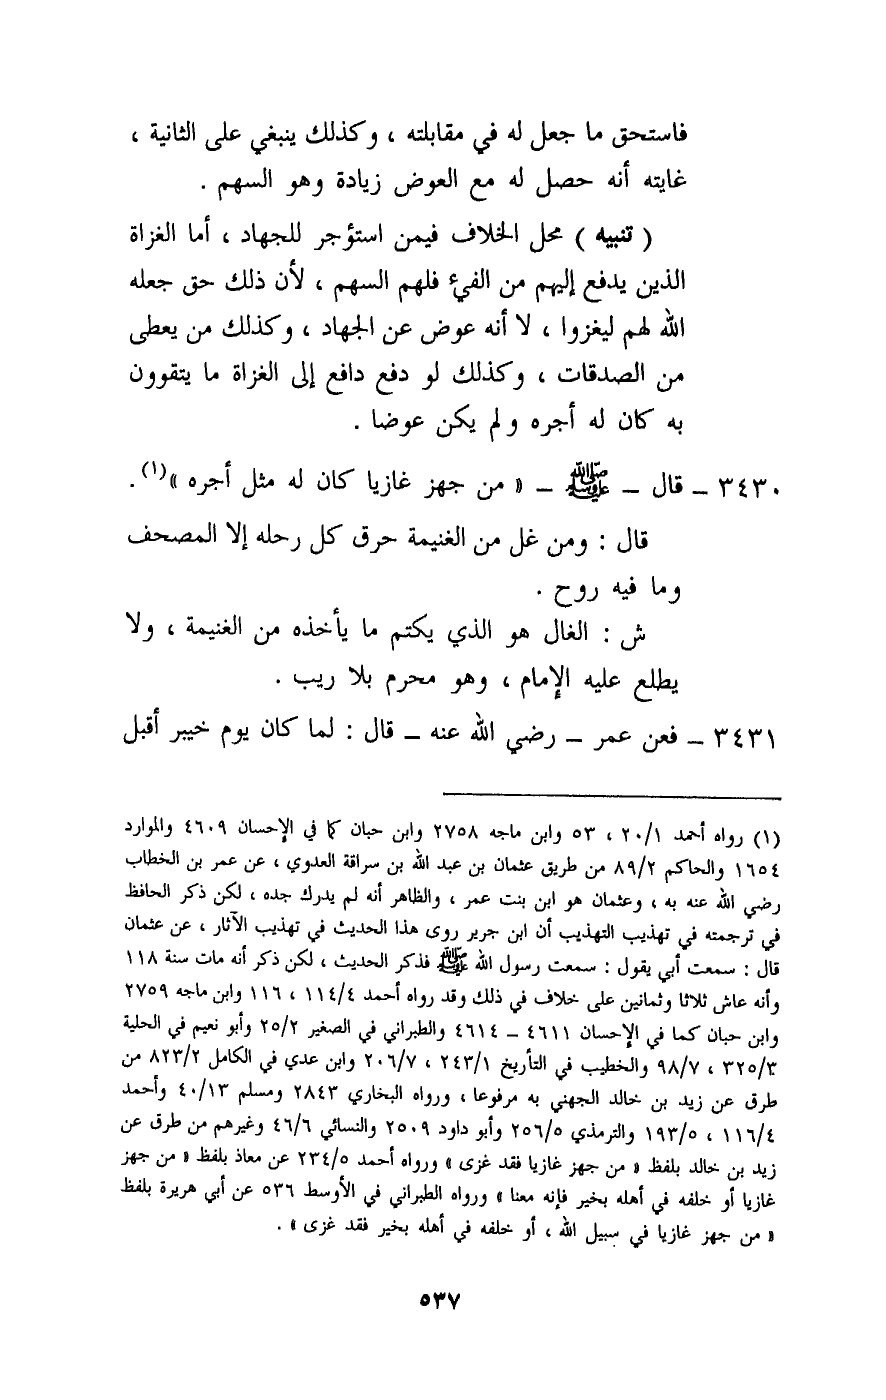 فاستحق ما جعل له في مقابلته ، وكذلك ينبغي على الثانية ،
غايته أنه حصل له مع العوض زيادة وهو السهم .
( تنبيه ) محل الخلاف فيمن استؤجر للجهاد ، أما الغزاة
الذين يدفع إليهم من الفيء فلهم السهم ، لأن ذلك حق جعله
الله لهم ليغزوا ، لا أنه عوض عن الجهاد ، وكذلك من يعطى
من الصدقات ، وكذلك لو دفع دافع إلى الغزاة ما يتقوون
به كان له أجره ولم يكن عوضا .
٣٤٣٠ ـ قال ـ ﷺ ـ « من جهز غازيا كان له مثل أجره »(١) .
قال : ومن غل من الغنيمة حرق كل رحله إلا المصحف
وما فيه روح .
ش : الغال هو الذي يكتم ما يأخذه من الغنيمة ، ولا
يطلع عليه الإمام ، وهو محرم بلا ريب .
٣٤٣١ ـ فعن عمر ـ رضي الله عنه ـ قال : لما كان يوم خيبر أقبل
(١) رواه أحمد ٢٠/١ ، ٥٣ وابن ماجه ٢٧٥٨ وابن حبان كما في الإحسان ٤٦٠٩ والموارد
١٦٥٤ والحاكم ٨٩/٢ من طريق عثمان بن عبد الله بن سراقة العدوي ، عن عمر بن الخطاب
رضي الله عنه به ، وعثمان هو ابن بنت عمر ، والظاهر أنه لم يدرك جده ، لكن ذكر الحافظ
في ترجمته في تهذيب التهذيب أن ابن جرير روى هذا الحديث في تهذيب الآثار ، عن عثمان
قال : سمعت أبي يقول : سمعت رسول الله ﷺ فذكر الحديث ، لكن ذكر أنه مات سنة ١١٨
وأنه عاش ثلاثا وثمانين على خلاف في ذلك وقد رواه أحمد ١١٤/٤ ، ١١٦ وابن ماجه ٢٧٥٩
وابن حبان كما في الإحسان ٤٦١١ ـ ٤٦١٤ والطبراني في الصغير ٢٥/٢ وأبو نعيم في الحلية
٣٢٥/٣ ، ٩٨/٧ والخطيب في التأريخ ٢٤٣/١ ، ٢٠٦/٧ وابن عدي في الكامل ٨٢٣/٢ من
طرق عن زيد بن خالد الجهني به مرفوعا ، ورواه البخاري ٢٨٤٣ ومسلم ٤٠/١٣ وأحمد
١١٦/٤ ، ١٩٣/٥ والترمذي ٢٥٦/٥ وأبو داود ٢٥٠٩ والنسائي ٤٦/٦ وغيرهم من طرق عن
زيد بن خالد بلفظ « من جهز غازيا فقد غزى » ورواه أحمد ٢٣٤/٥ عن معاذ بلفظ « من جهز
غازيا أو خلفه في أهله بخير فإنه معنا » ورواه الطبراني في الأوسط ٥٣٦ عن أبي هريرة بلفظ
« من جهز غازيا في سبيل الله ، أو خلفه في أهله بخير فقد غزى » .
٥٣٧